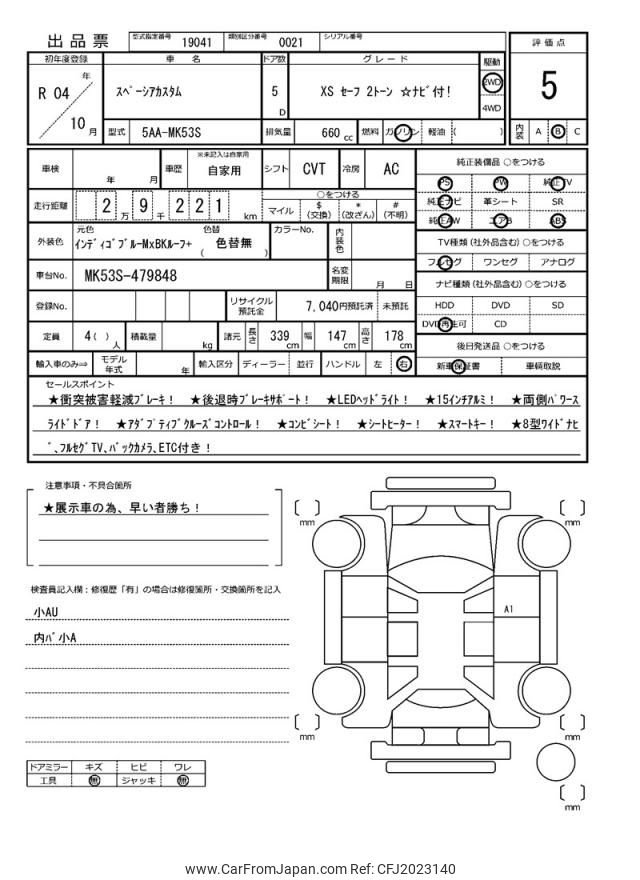 出品票 型式指定番号 19041 類別区分番号 0021 シリアル番号
評価点
5
内装 A B C
初年度登録 車名 ドア数 グレード 駆動
R 04 年 10 月
スペーシアカスタム 5 D XS セーフ 2トーン ☆ナビ付! 2WD 4WD
型式 5AA-MK53S 排気量 660 cc 燃料 ガソリン 軽油 ( )
車検 年 月 車歴 ※未記入は自家用 自家用 シフト CVT 冷房 AC
走行距離 2 万 9 千 2 2 1 km
○をつける
マイル $ (交換) * (改ざん) # (不明)
外装色 元色 インディゴブルーMxBKルーフ+ 色替 ( 色替無 ) カラーNo. 内装色
車台No. MK53S-479848 名変期限 月 日
登録No. リサイクル預託金 7,040円預託済 未預託
定員 4( ) 人 積載量 kg 諸元 長さ 339 cm 幅 147 cm 高さ 178 cm
輸入車のみ⇒ モデル年式 年 輸入区分 ディーラー 並行 ハンドル 左 右
純正装備品 ○をつける
PS PW 純正TV
純正ナビ 革シート SR
純正AW エアB ABS
TV種類(社外品含む) ○をつける
フルセグ ワンセグ アナログ
ナビ種類(社外品含む) ○をつける
HDD DVD SD
DVD再生可 CD
後日発送品 ○をつける
新車保証書 車輌取説
セールスポイント
★衝突被害軽減ブレーキ! ★後退時ブレーキサポート! ★LEDヘッドライト! ★15インチアルミ! ★両側パワース
ライドドア! ★アダプティブクルーズコントロール! ★コンビシート! ★シートヒーター! ★スマートキー! ★8型ワイドナビ
゙、フルセグTV、バックカメラ、ETC付き!
注意事項・不具合箇所
★展示車の為、早い者勝ち!
検査員記入欄:修復歴「有」の場合は修復箇所・交換箇所を記入
小AU
内バ小A
ドアミラー キズ ヒビ ワレ
工具 無 ジャッキ 無
mm
mm
A1
mm
mm
mm
www.CarFromJapan.com Ref: CFJ2023140